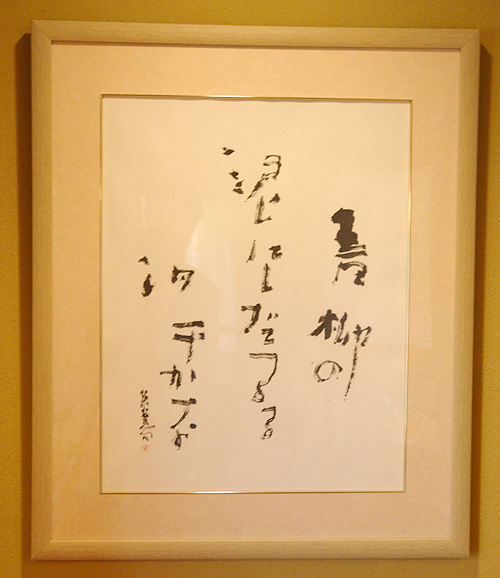 青柳の
泥にしだるる
汐干かな